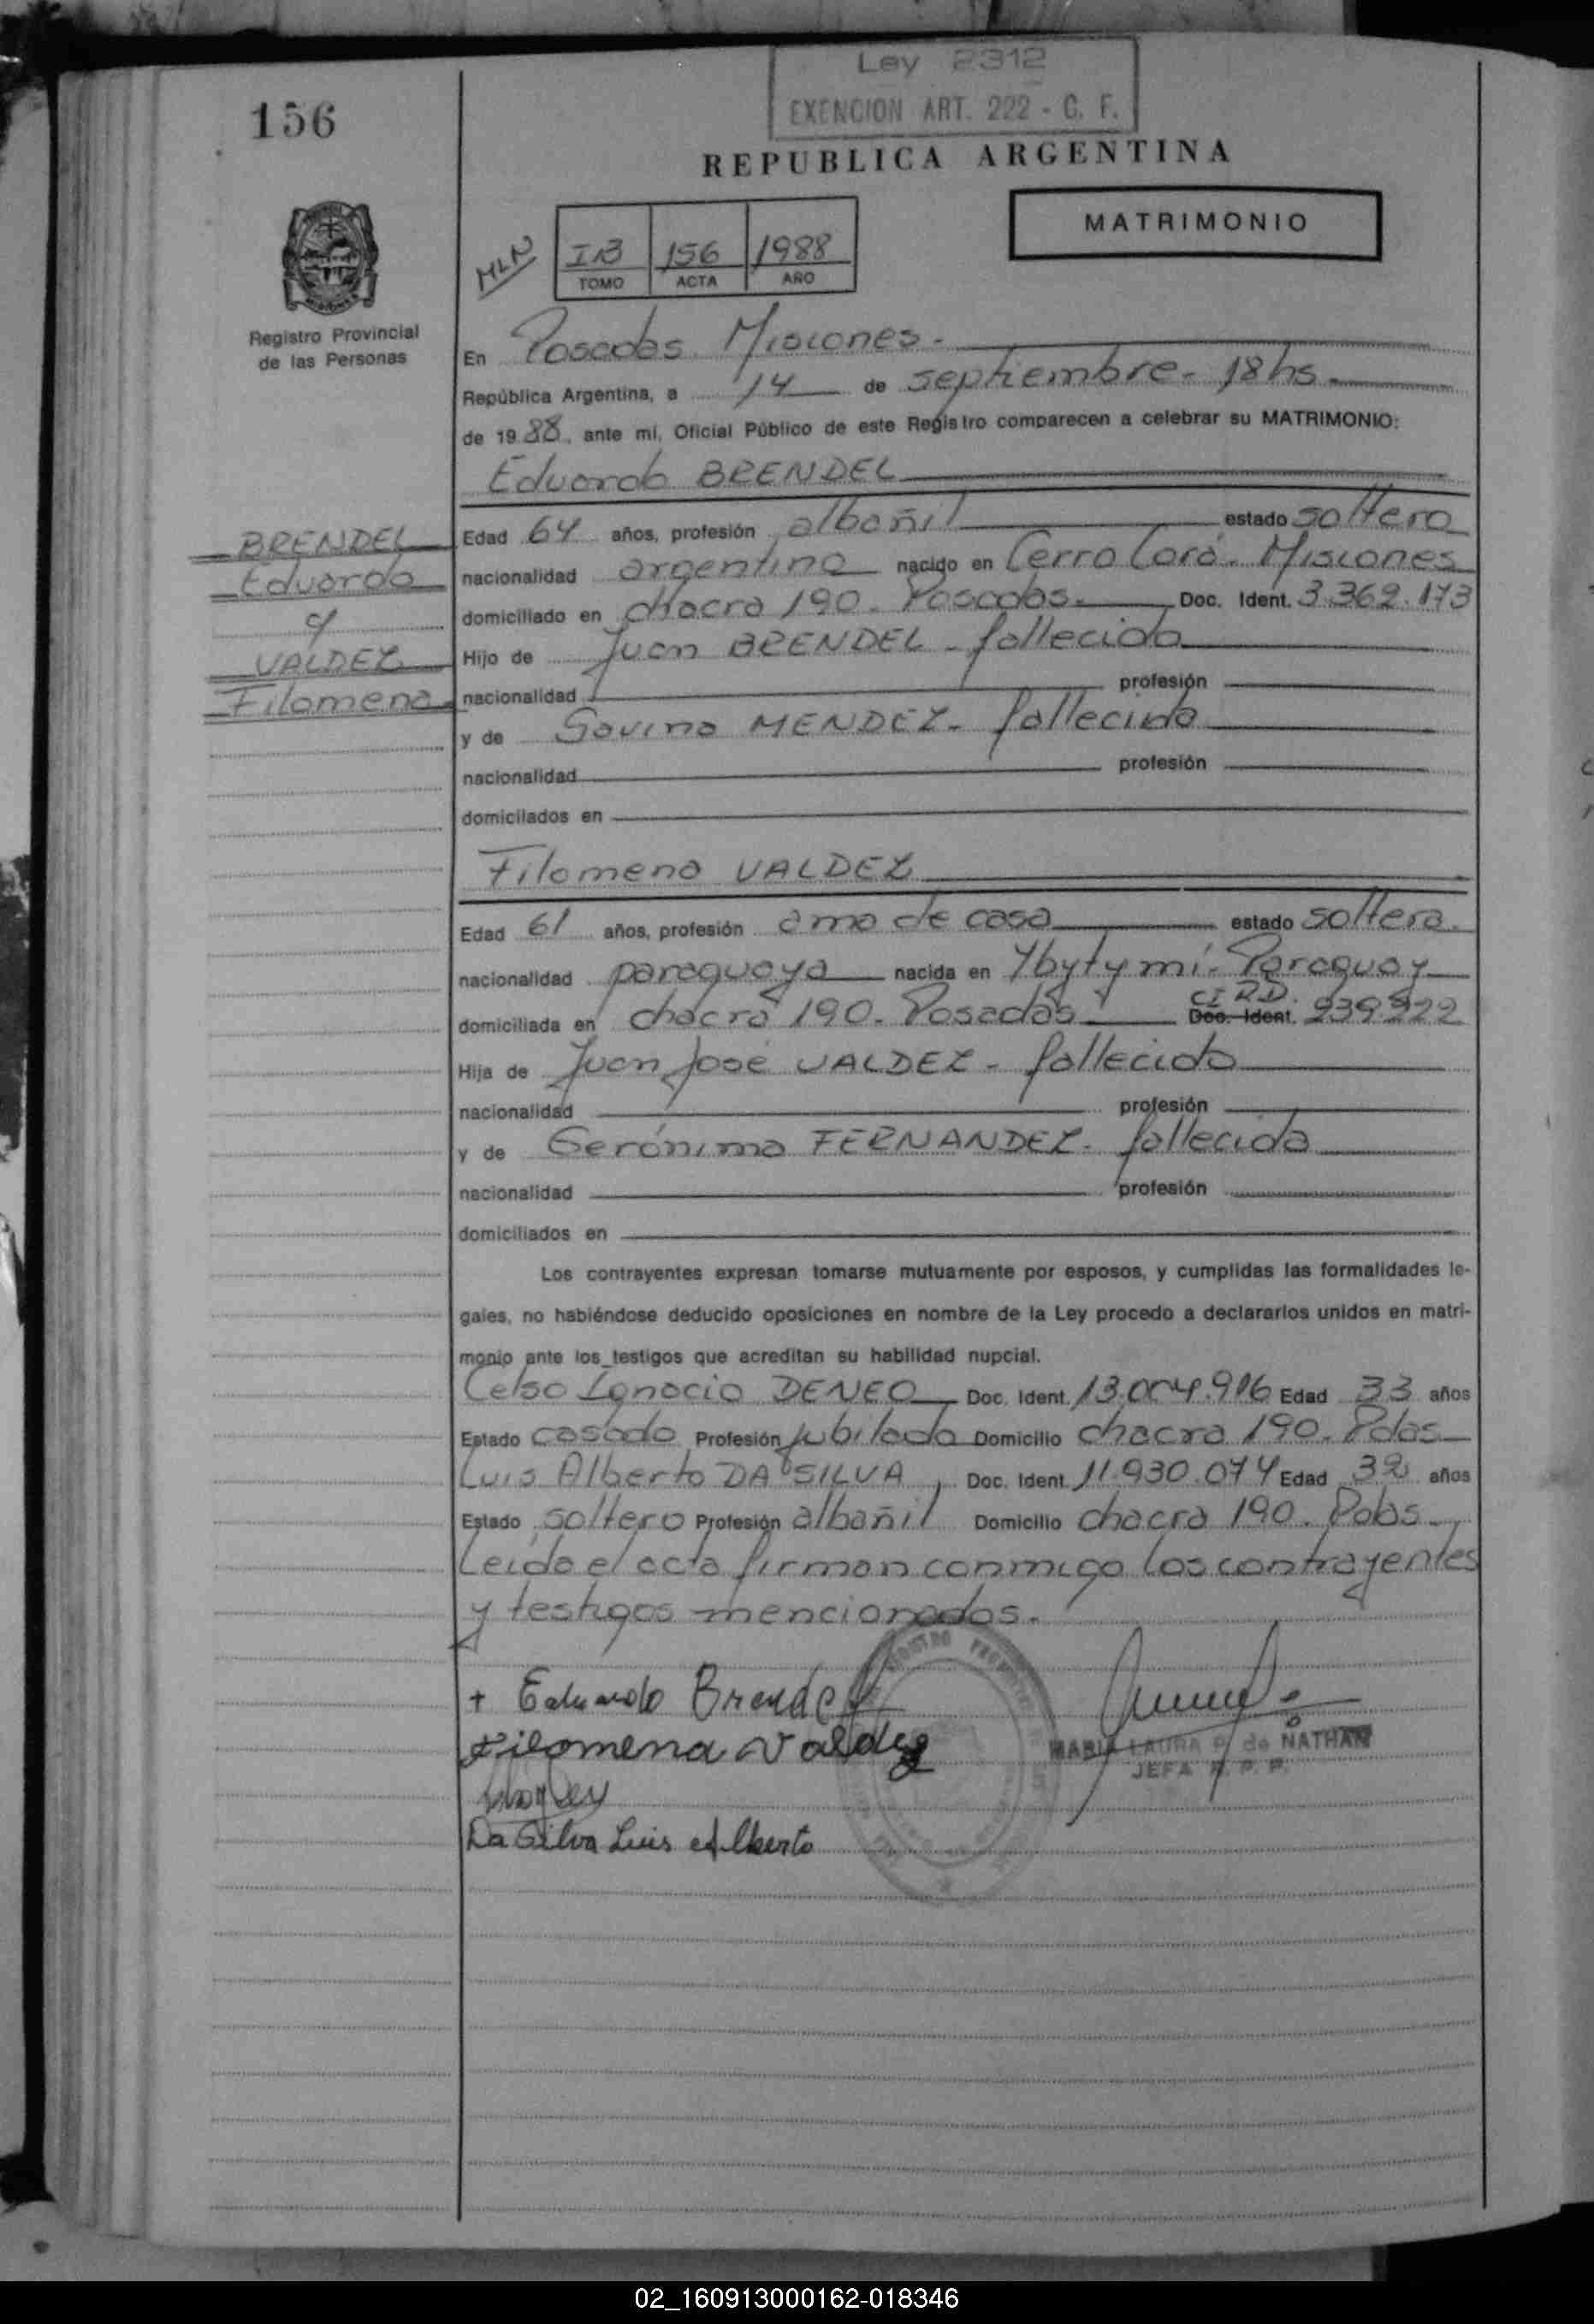 Ley 2312
EXENCION ART. 222 - C. F.
156
REPUBLICA ARGENTINA
MATRIMONIO
MLN
IB 156 1988
TOMO ACTA AÑO
Registro Provincial
de las Personas
En Posadas. Misiones.
República Argentina, a 14 de septiembre. 18 hs.
de 1988, ante mi, Oficial Público de este Registro comparecen a celebrar su MATRIMONIO:
Eduardo BRENDEL
BRENDEL
Eduardo
c/
VALDEZ
Filomena
Edad 64 años, profesión albañil estado soltero
nacionalidad argentina nacido en Cerro Corá. Misiones
domiciliado en chacra 190. Posadas. Doc. Ident. 3.362.173
Hijo de Juan BRENDEL - fallecido
nacionalidad profesión
y de Savina MENDEZ. fallecida
nacionalidad profesión
domicilados en
Filomena VALDEZ
Edad 61 años, profesión ama de casa estado soltera.
nacionalidad paraguaya nacida en Ybytymí. Paraguay
domiciliada en chacra 190. Posadas CI RD. Doc. Ident. 239.922
Hija de Juan José VALDEZ - fallecido
nacionalidad profesión
y de Gerónima FERNANDEZ. fallecida
nacionalidad profesión
domiciliados en
Los contrayentes expresan tomarse mutuamente por esposos, y cumplidas las formalidades le-
gales, no habiéndose deducido oposiciones en nombre de la Ley procedo a declararlos unidos en matri-
monio ante los testigos que acreditan su habilidad nupcial.
Celso Ignacio DENEO Doc. Ident. 13.004.916 Edad 33 años
Estado casado Profesión jubilado Domicilio chacra 190. Pdas
Luis Alberto DA SILVA, Doc. Ident. 11.930.074 Edad 32 años
Estado soltero Profesión albañil Domicilio chacra 190. Pdas.
Leída el acta firman conmigo los contrayentes
y testigos mencionados.
+ Eduardo Brendel
Filomena Valdez
MARIA LAURA P. de NATHAN
JEFA R. P. P.
Da Silva Luis Alberto
02_160913000162-018346